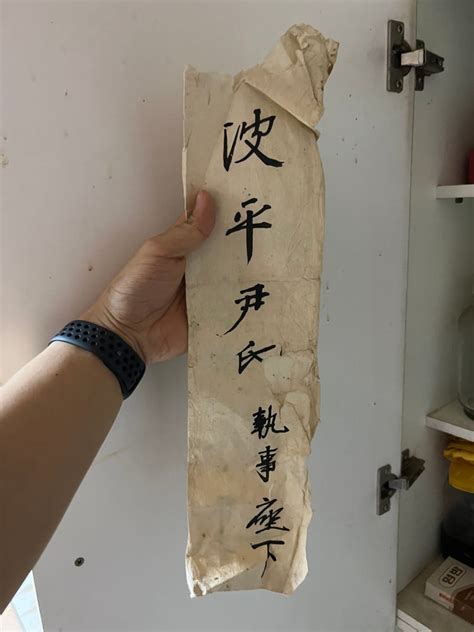 波平尹氏執事座下